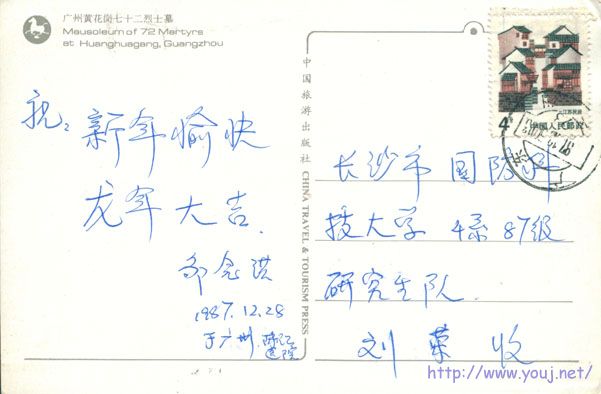 广州黄花岗七十二烈士墓
Mausoleum of 72 Martyrs
at Huanghuagang, Guangzhou
祝:
新年愉快
龙年大吉.
邹念洪
1987.12.28
于广州
中国旅游出版社 CHINA TRAVEL & TOURISM PRESS
江苏民居
4分
中国人民邮政
长沙市国防科
技大学 4系87级
研究生队.
刘荣 收
http://www.youj.net/